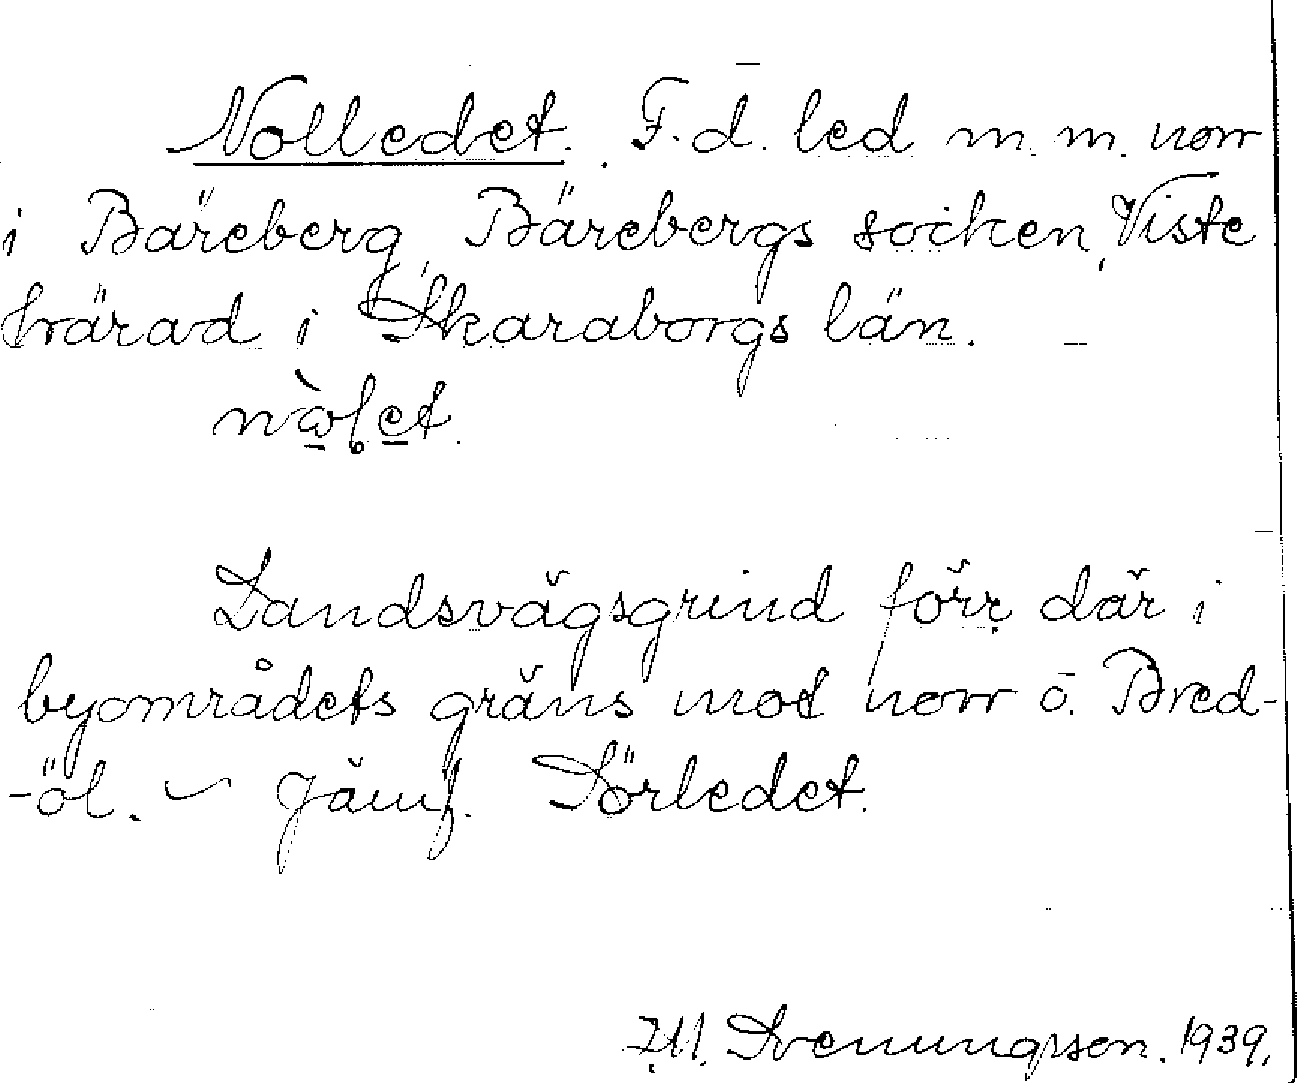 Nolledet. F. d. led m. m. norr
i Bäreberg, Bärebergs socken, Viste
härad i Skaraborgs län.
Landsvägsgrind förr där i
byområdets gräns mot norr o. Bred-
-öl. – Jämf. Sörledet.
Svenungsson. 1939.